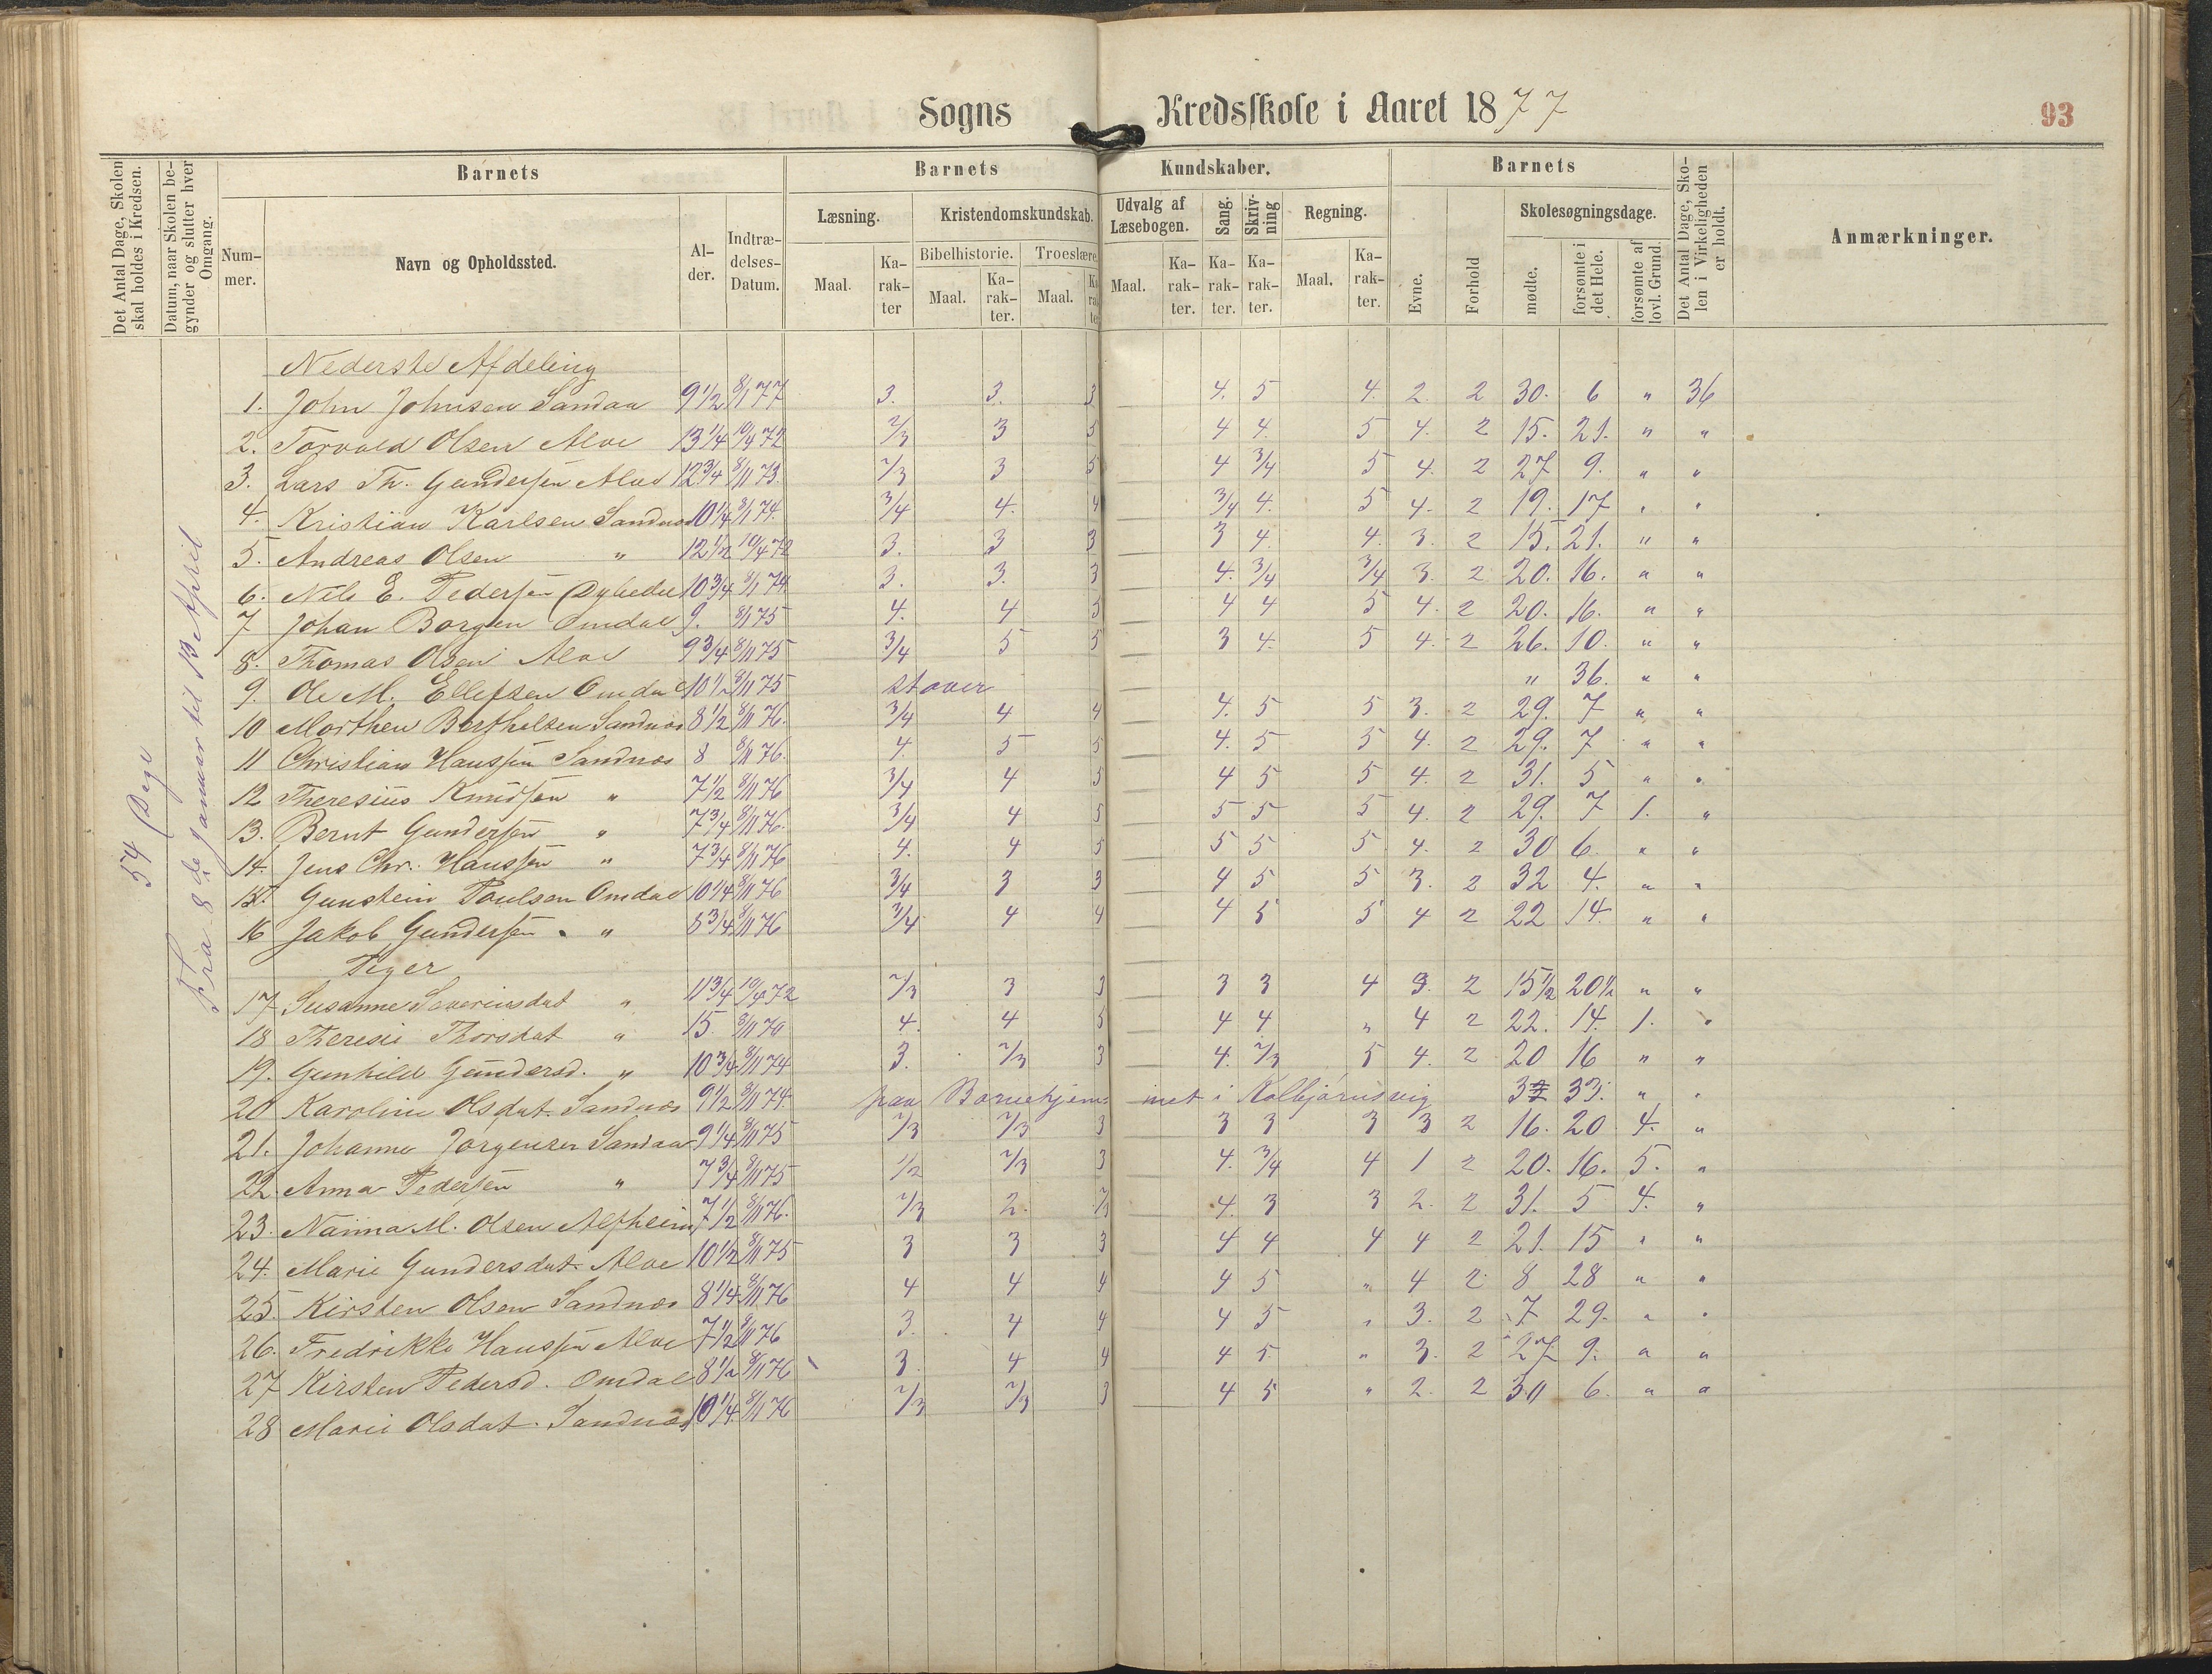 Sogns Kredsskole i Aaret 1877
93
Det Antal Dage, Skolen skal holdes i Kredsen.
Datum, naar Skolen begynder og slutter hver Omgang.
Barnets
Nummer.
Navn og Opholdssted.
Alder.
Indtrædelses-Datum.
Barnets Kundskaber.
Læsning.
Maal. Karakter
Kristendomskundskab.
Bibelhistorie.
Maal. Karakter.
Troeslære.
Maal. Karakter
Udvalg af Læsebogen.
Maal. Karakter.
Sang. Karakter.
Skrivning Karakter.
Regning.
Maal. Karakter.
Barnets
Evne.
Forhold
Skolesøgningsdage.
mødte.
forsømte i det Hele.
forsømte af lovl. Grund.
Det Antal Dage, Skolen i Virkeligheden er holdt.
Anmærkninger.
54 Dage
Fra 8de Januar til 13 April
Nederste Afdeling
1. John Johnsen Sandaa 9 1/2 8/1 77 3. 3. 3 4. 5 4. 2. 2 30. 6 " 36
2. Torvald Olsen Alve 13 1/4 10/4 72 2/3 3 5 4 4. 5 4. 2 15. 21. " "
3. Lars Th. Gundersen Alve 12 3/4 8/11 73. 2/3 3 5 4 3/4 5 4. 2 27 9. " "
4. Kristian Karlsen Sandnæs 10 1/4 8/1 74. 3/4 4. 4 3/4 4. 5 4. 2 19. 17 " "
5. Andreas Olsen " 12 1/2 10/4 72 3. 3 3 3 4. 4. 3. 2 15. 21. " "
6. Nils E. Pedersen Dybedal 10 3/4 8/1 74. 3. 3. 3 4. 3/4 3/4 3. 2 20. 16. " "
7 Johan Borgen Omdal 9. 8/1 75 4. 4 5 4 4 5 4. 2 20. 16. " "
8. Thomas Olsen Alve 9 3/4 8/11 75 3/4 5 5 3 4. 5 4. 2 26. 10. " "
9. Ole M. Ellefsen Omdal 10 1/2 8/11 75 staver " 36. " "
10 Morthen Berthelsen Sandnæs 8 1/2 8/11 76. 3/4 4 4 4. 5 5 3. 2 29. 7 " "
11 Christian Hanssen Sandnæs 8 8/11 76. 4. 5 5 4. 5 5 4. 2 29. 7 " "
12 Theresius Knudsen " 7 1/2 8/11 76 3/4 4 5 4 5 5 4. 2 31. 5 " "
13. Bernt Gundersen " 7 3/4 8/11 76. 3/4 4 5 5 5 5 4. 2 29. 7 1. "
14. Jens Chr. Hanssen " 7 3/4 8/11 76 4. 4 5 5 5 5 4. 2 30 6. " "
15. Gunstein Poulsen Omdal 10 1/4 8/11 76 3/4 3 3 4 5 5 3. 2 32 4. " "
16 Jakob Gundersen " 8 3/4 8/11 76 3/4 4 4 4 5 5 4 2 22 14. " "
Piger
17 Susanne Severinsdat " 11 3/4 10/4 72 2/3 3 3 3 3 4 3. 2 15 1/2 20 1/2 " "
18 Theresie Thorsdat " 15. 8/11 70 4. 4 5 4 4 " 4 2 22. 14. 1. "
19. Gunhild Gundersd. " 10 3/4 8/11 74 3. 2/3 3 4. 2/3 5 4. 2 20 16 " "
20 Karoline Olsdat. Sandnæs 9 1/2 8/11 74. paa Børnehjemmet i Kolbjørnsvig 3 33. " "
21. Johanne Jørgensen Sandaa 9 1/4 8/11 75 2/3 2/3 3 3 3 3 3 2 16. 20 4. "
22 Anna Pedersen " 7 3/4 8/11 75 1/2 2/3 3 4. 3/4 4 1 2 20. 16. 5. "
23. Nanna M. Olsen Alfheim 7 1/2 8/11 76. 2/3 2. 2/3 4. 3 3 2. 2 31. 5 4. "
24. Marie Gundersdat. Alve 10 1/2 8/11 75 3 3 3 4 4 4 4 2 21. 15 " "
25. Kirsten Olsen Sandnæs 8 1/4 8/11 76 4 4 4 4 5 " 4 2 8 28 " "
26. Fredrikke Hanssen Alve 7 1/2 8/11 76 3. 4 4 4 5 " 3. 2 7 29. " "
27 Kirsten Pedersd. Omdal 8 1/2 8/11 76 3. 4 4 4 5. " 3. 2 27. 9. " "
28 Marie Olsdat. Sandnæs 10 1/4 8/11 76 2/3 2/3 3 4 5 " 2. 2 30 6. " "